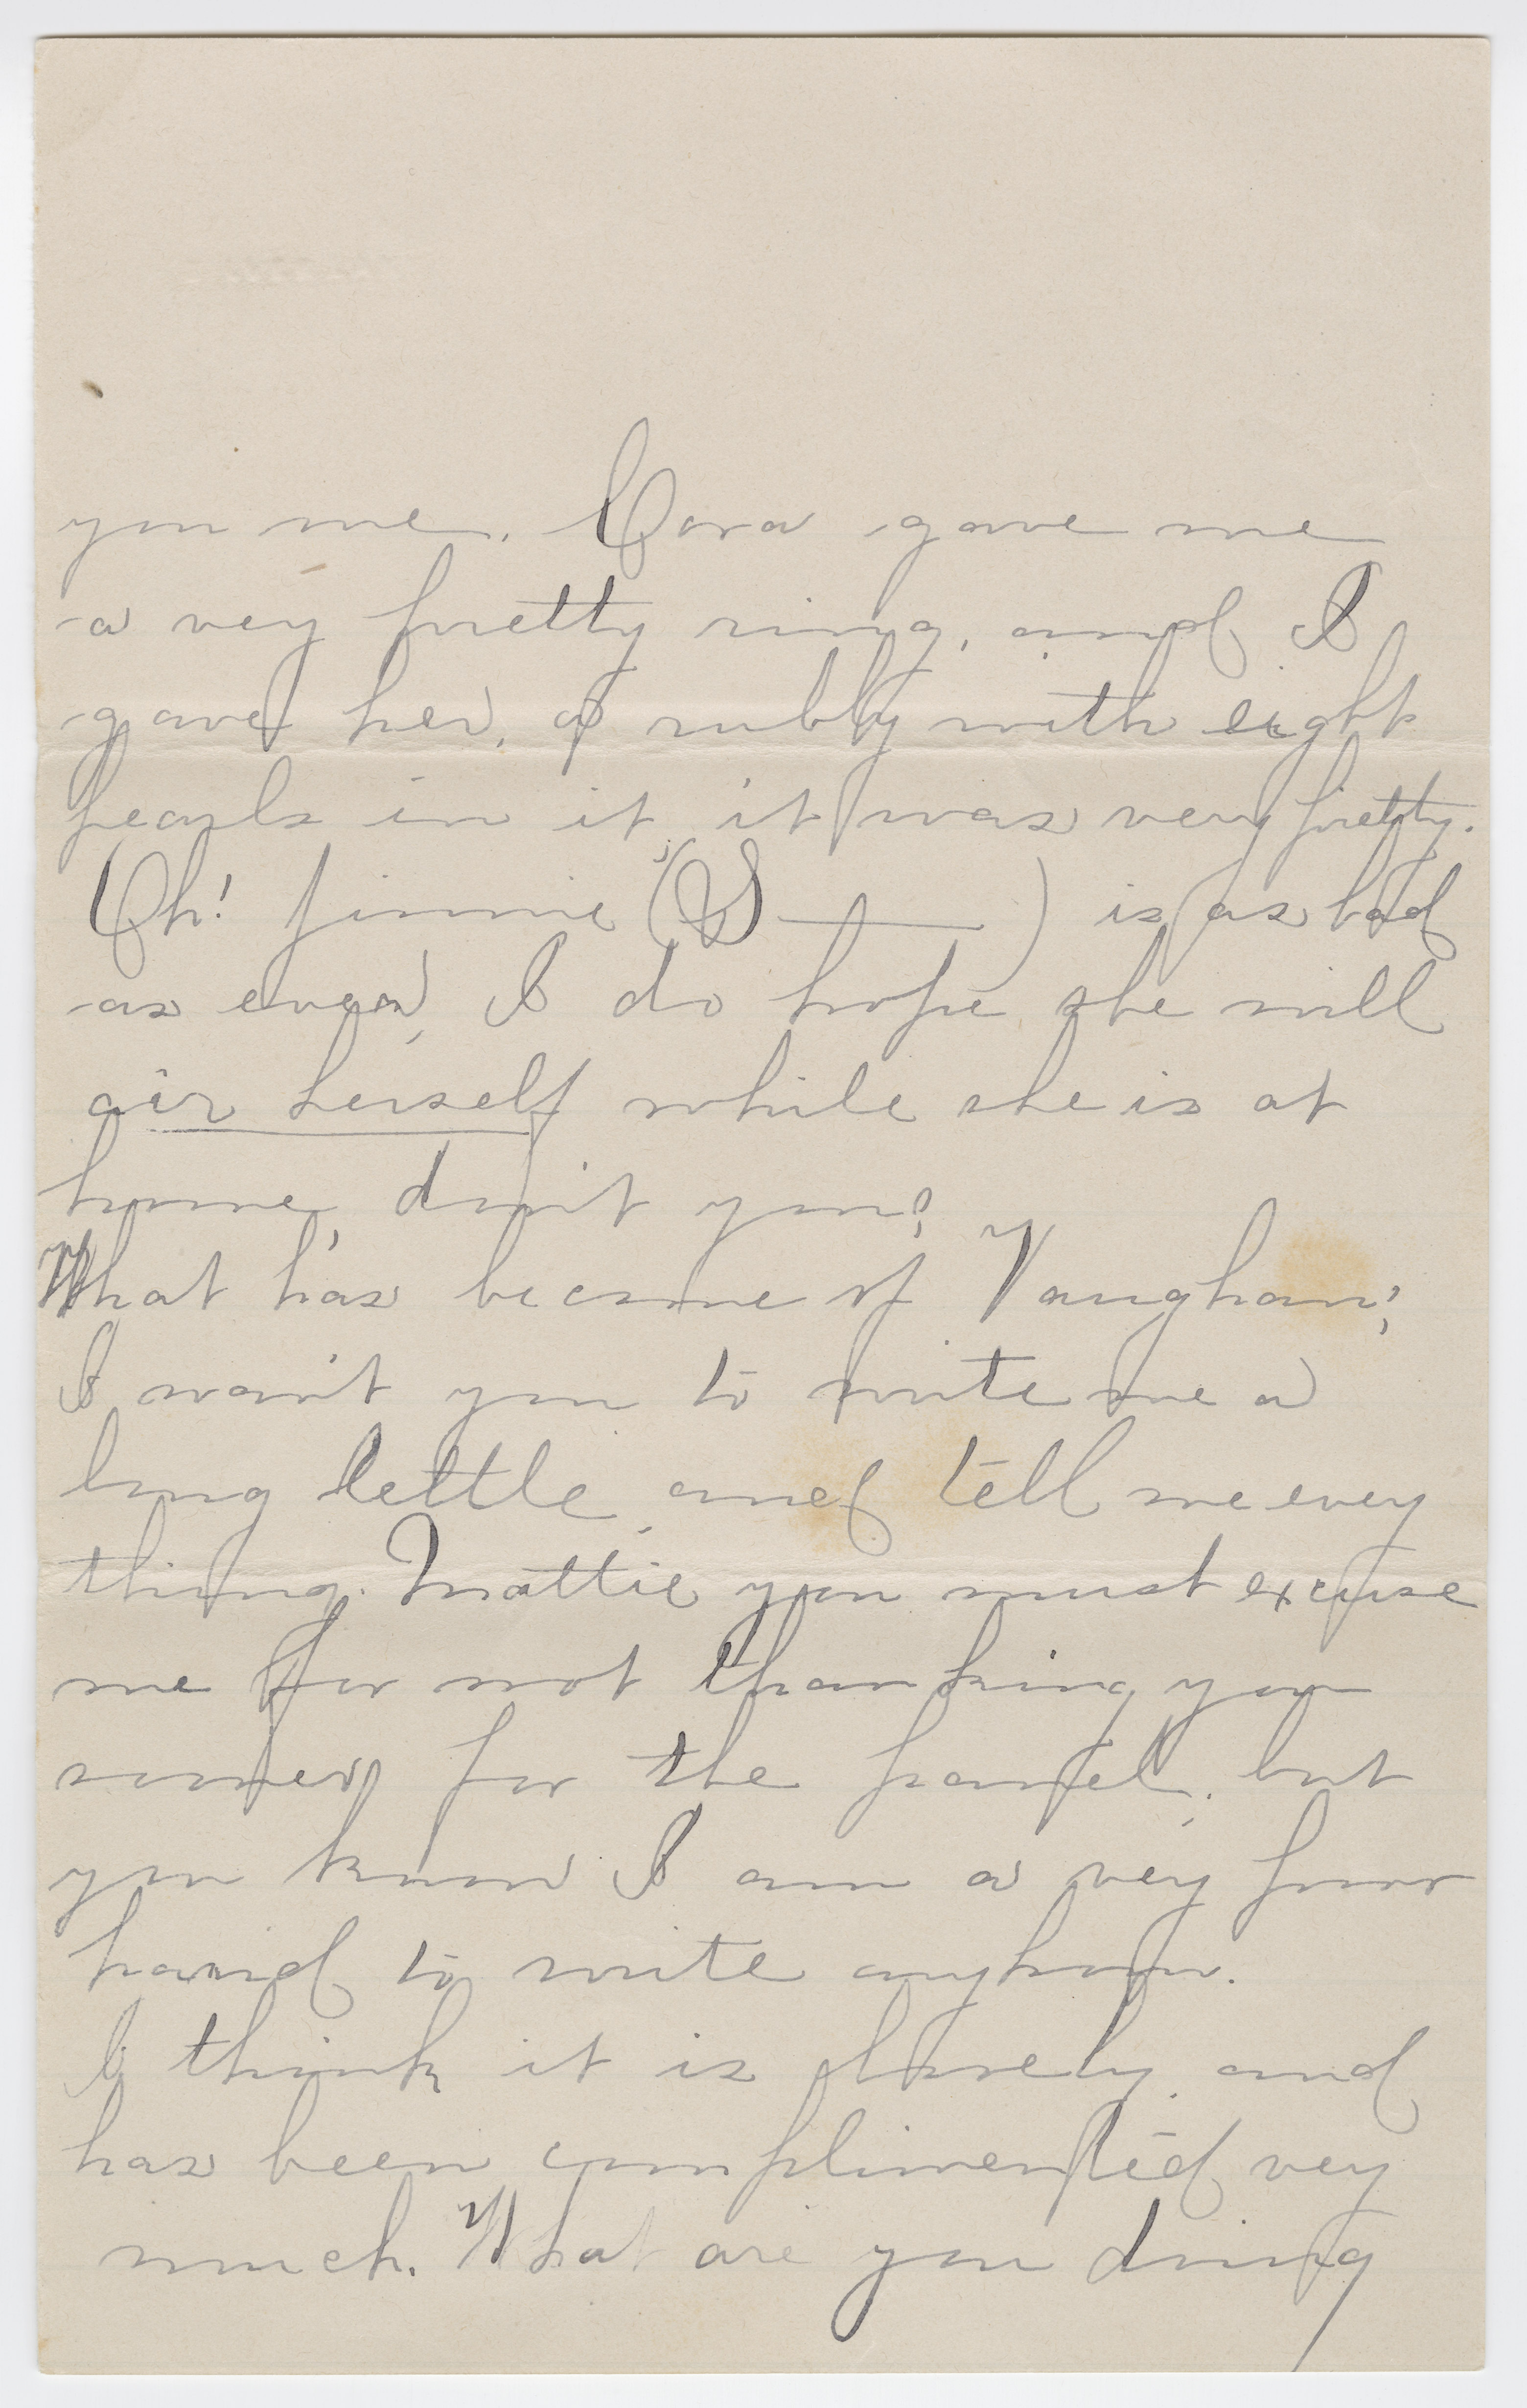 you me. Cora gave me
a very pretty ring, and I
gave her, a rubby with eight
pearls in it, it was very pretty.
Oh! Jimmie (S——) is as bad
as ever, I do hope she will
air herself while she is at
home, don't you?
What has become of Vaughan?
I want you to write me a
long lettle, and tell me every
thing. Mattie you must excuse
me for not thanking you
sooner for the panel, but
you know I am a very poor
hand to write anyhow.
I think it is lovely, and
has been complimented very
much. What are you doing